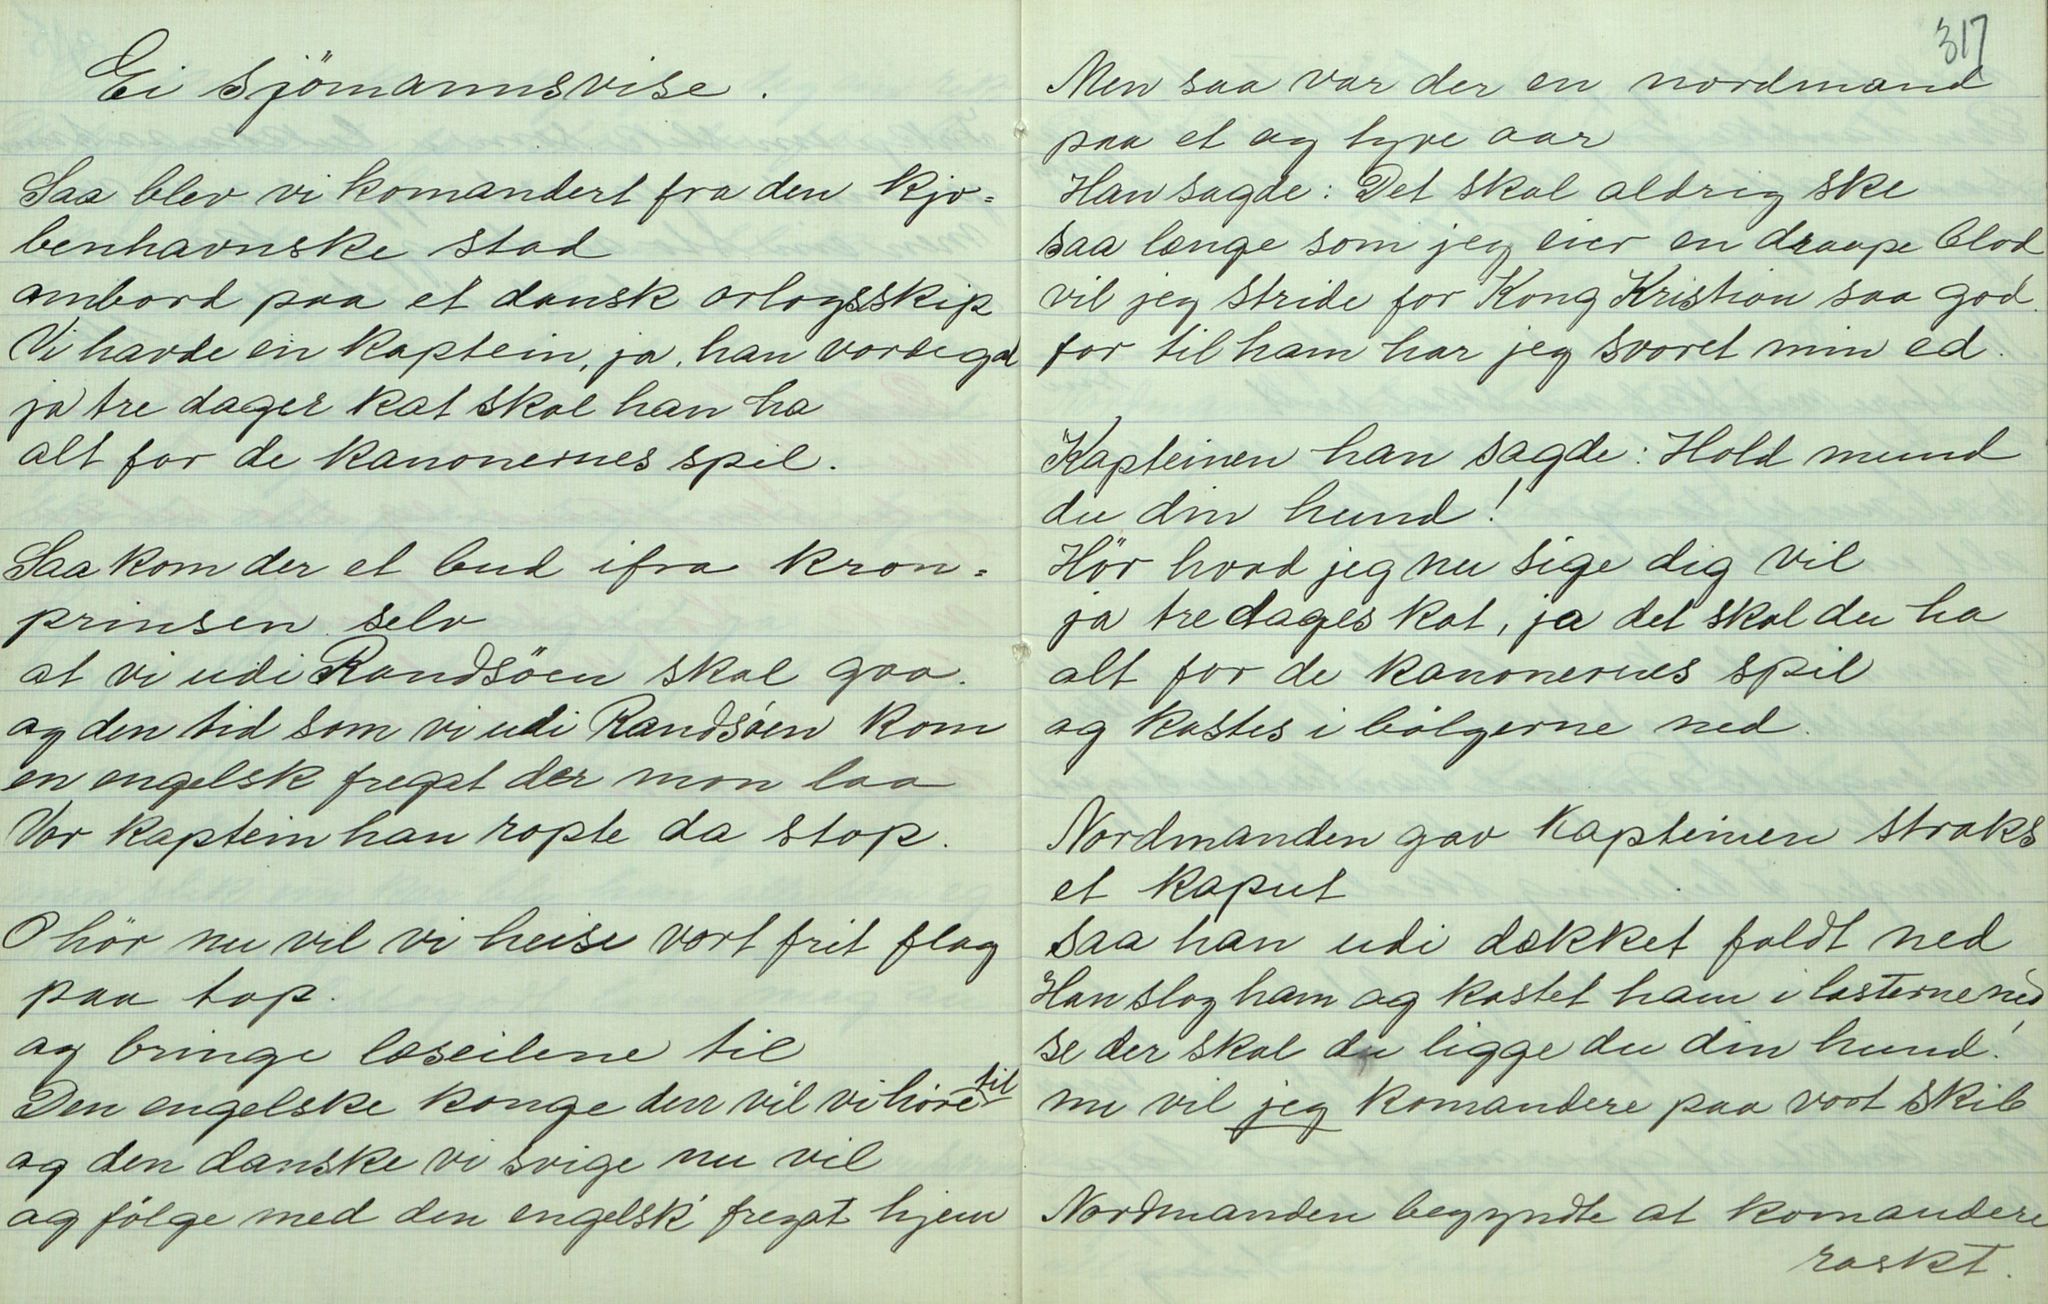 Ei sjömannsvise.
Saa blev vi komandert fra den kjø=
benhavnske stad
ombord paa et dansk orlogsskip
Vi havde en kaptein, ja, han var
ja tre dager kat skal han ha
alt for de kanonernes spil.
Saa kom der et bud ifra kron=
prinsen selv
at vi udi Randsöen skal gaa.
og den tid som vi udi Randsöen kom
en engelsk fregat der mon laa
Vor kaptein han ropte da stop.
O hör nu vil vi heise vort frit flag
paa top.
og bringe læseilene til
Den engelske konge den vil vi höre til
og den danske vi svige nu vil
og fölge med den engelsk fregat hjem
317
Men saa var der en nordmand
paa et og tyve aar
Han sagde: Det skal aldrig ske
saa længe som jeg eier en draape blod
vil jeg stride for Kong Kristian saa god
for til ham har jeg svoret min ed.
Kapteinen han sagde: Hold mund
du din hund!
Hör hvad jeg nu sige dig vil
ja tre dages kat, ja det skal du ha
alt for de kanonernes spil
og kastes i bölgerne ned.
Nordmanden gav kapteinen straks
et kaput
saa han udi dækket faldt ned
Han slog ham og kastet ham i lasterne ned
se der skal du ligge du din hund!
nu vil jeg komandere paa vort skib
Nordmanden begyndte at komandere
raskt.